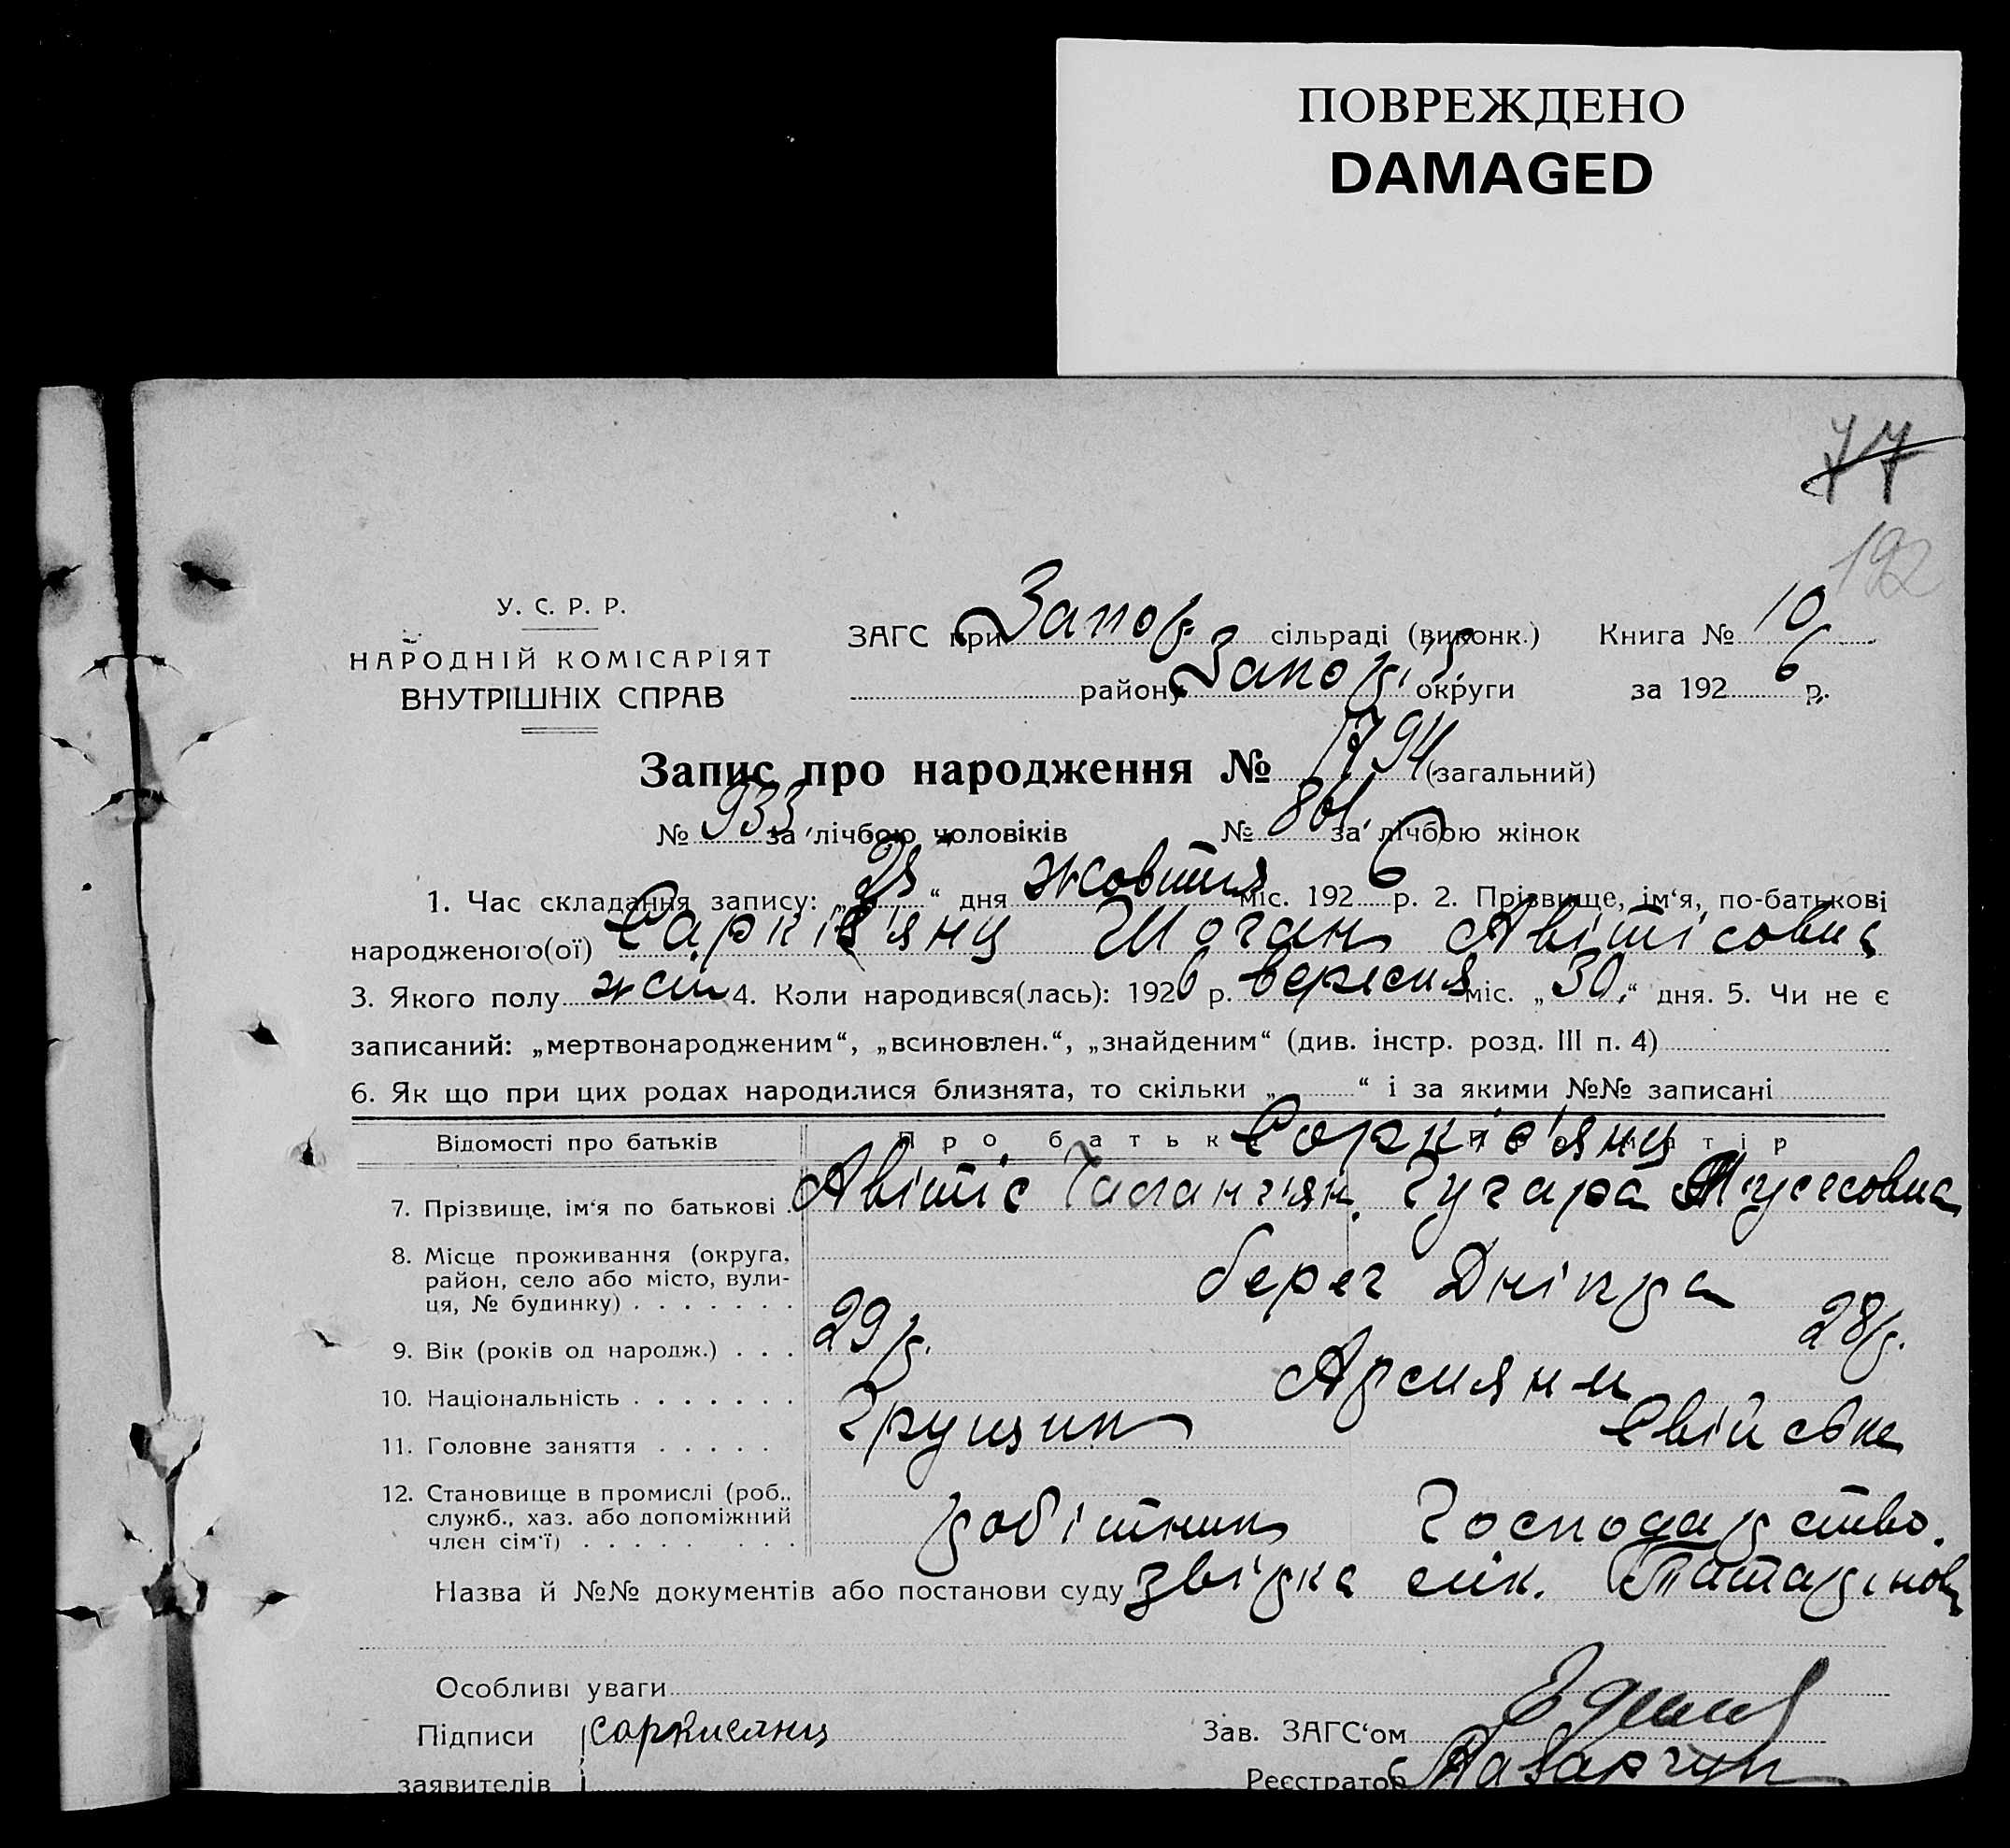 ПОВРЕЖДЕНО
DAMAGED
77
192
У. С. Р. Р.
НАРОДНІЙ КОМІСАРІЯТ
ВНУТРІШНІХ СПРАВ
ЗАГС при Запор. сільраді (виконк.) Книга № 10
району Запор. округи за 1926 р.
Запис про народження № 1794 (загальний)
№ 933 за лічбою чоловіків № 861 за лічбою жінок
1. Час складання запису: „ “ дня жовтня міс. 1926 р. 2. Прізвище, ім‘я, по-батькові
народженого(ої) Саркіс'янц Шоган Авітісовна
3. Якого полу жін 4. Коли народився(лась): 1926 р. вересня міс. „30“ дня. 5. Чи не є
записаний: „мертвонародженим“, „всиновлен.“, „знайденим“ (див. інстр. розд. III п. 4)
6. Як що при цих родах народилися близнята, то скільки „ “ і за якими №№ записані
Відомості про батьків Про батька Про матір
Саркіс'янц
7. Прізвище, ім‘я по батькові Авітіс Гугара Мусесовна
8. Місце проживання (округа, район, село або місто, вулиця, № будинку) берег Дніпра
9. Вік (років од народж.) 29 р. 28 р.
10. Національність Армяни
11. Головне заняття Грущик Свійське
12. Становище в промислі (роб., служб., хаз. або допоміжний член сім‘ї) робітник господарство.
Назва й №№ документів або постанови суду звірка лік. Татарінов
Особливі уваги
Підписи Саркисянц Зав. ЗАГС‘ом
заявителів Реєстратор Назарчук